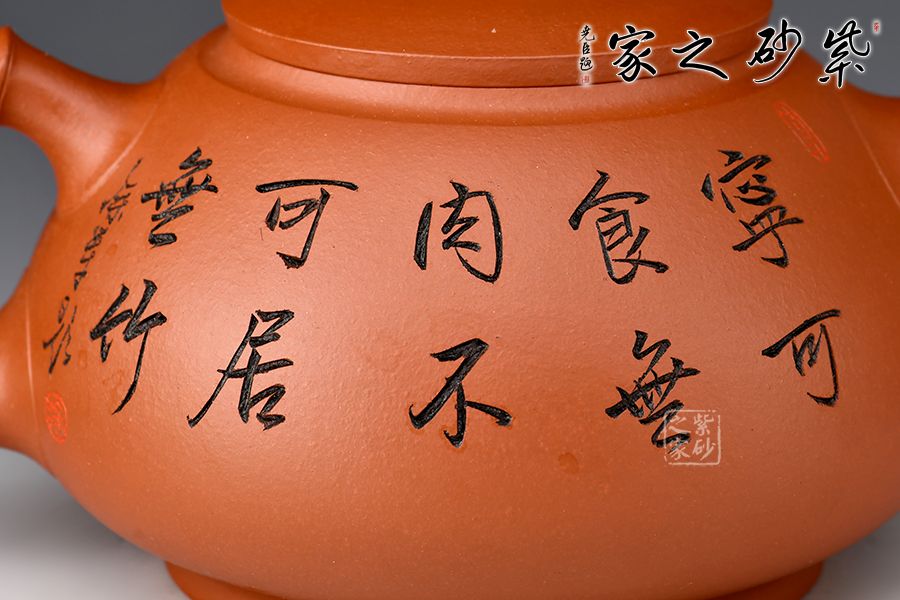 紫砂之家
寧可
食無
肉不
可居
無竹
紫砂之家